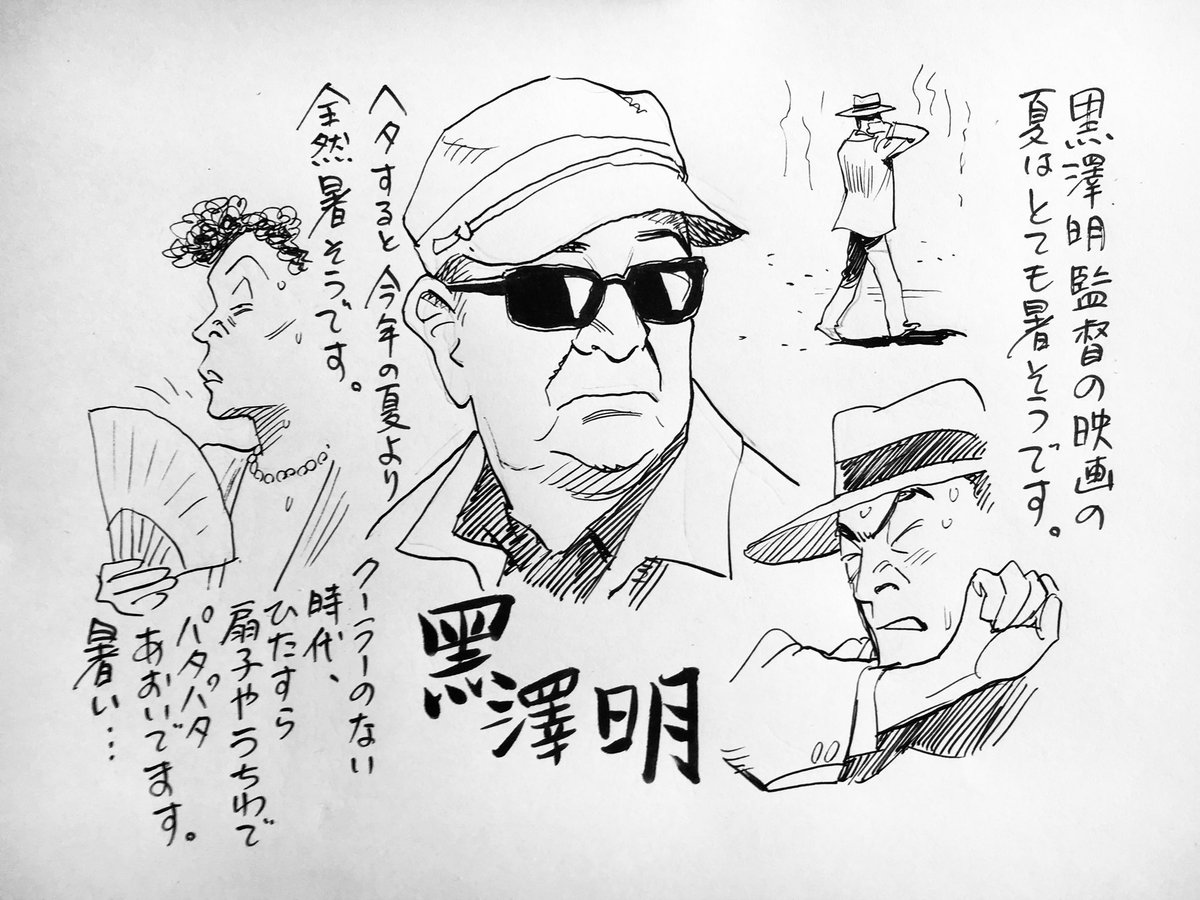 黒澤明監督の映画の
夏はとても暑そうです。
ヘタすると今年の夏より
全然暑そうです。
クーラーのない
時代、
ひたすら
扇子やうちわで
パタパタ
あおいでます。
暑い…
黑澤明